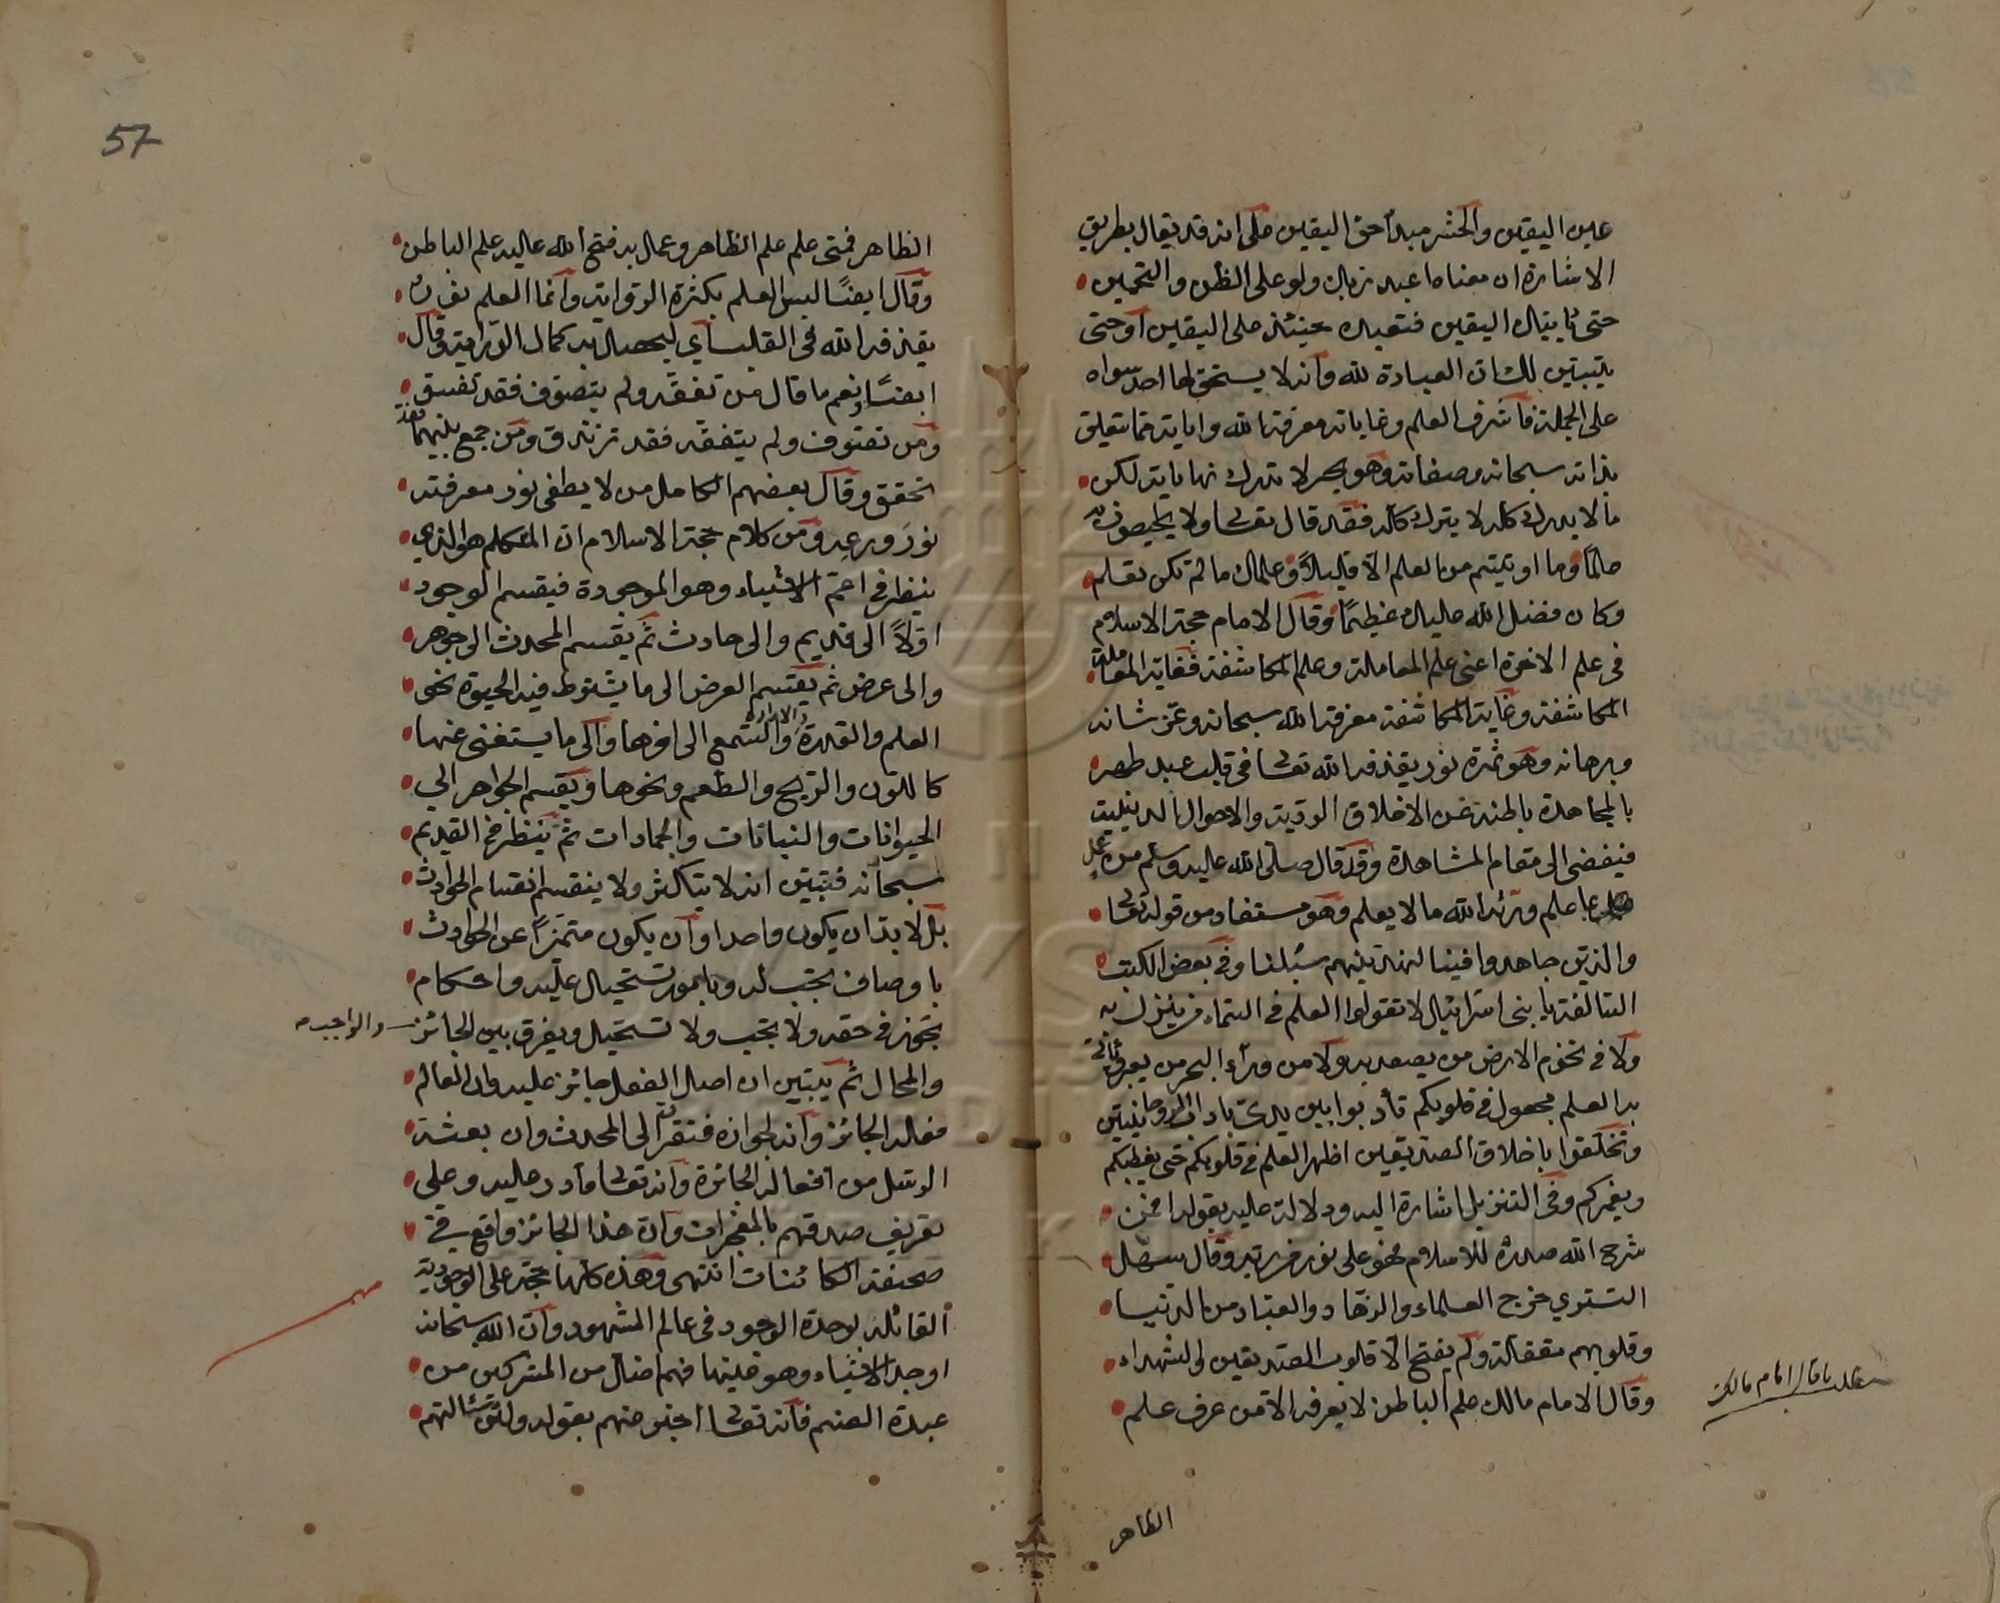 عين اليقين والحشر مبدأ حق اليقين على انه قد يقال بطريق
الاشارة ان معناه اعبد ربك ولو على الظن والتخمين
حتى يأتيك اليقين فتعبده حينئذ على اليقين او حتى
يتبين لك ان العبادة لله وانه لا يستحق لها احد سواه
على الجملة فاشرف العلم وغاياته معرفة الله وآياته مما يتعلق
بذاته سبحانه وصفاته وهو بحر لا تدرك نهاياته لكن
ما لا يدرك كله لا يترك كله فقد قال تعالى ولا يحيطون به
علما وما اوتيتم من العلم الا قليلا وعلمك ما لم تكن تعلم
وكان فضل الله عليك عظيما وقال الامام حجة الاسلام
فى علم الاخرة اعنى علم المعاملة وعلم المكاشفة فغاية المعاملة
المكاشفة وغاية المكاشفة معرفة الله سبحانه وعز شانه
وبرهانه وهو ثمرة نور يقذفه الله تعالى فى قلب عبد طهر
بالمجاهدة باطنه عن الاخلاق الردية والاحوال الدنية
فيفضى الى مقام المشاهدة وقد قال صلى الله عليه وسلم من عمل
بما علم ورثه الله ما لا يعلم وهو مستفاد من قوله تعالى
والذين جاهدوا فينا لنهدينهم سبلنا وفى بعض الكتب
السالفة يا بنى اسرائيل لا تقولوا العلم فى السماء من ينزل به
ولا فى تخوم الارض من يصعد به ولا من وراء البحر من يعبر يأتى
به العلم مجعول فى قلوبكم تأدبوا بين يدى بآداب الروحانيين
وتخلقوا باخلاق الصديقين اظهر العلم فى قلوبكم حتى يغطيكم
ويغمركم وفى التنزيل اشارة اليه ودلالة عليه بقوله افمن
شرح الله صدره للاسلام فهو على نور من ربه وقال سهل
التستري خرج العلماء والزهاد والعباد من الدنيا
وقلوبهم مقفلة ولم يفتح الا قلوب الصديقين والشهداء
وقال الامام مالك علم الباطن لا يعرفه الا من عرف علم
الظاهر
57
الظاهر فمتى علم علم الظاهر وعمل به فتح الله عليه علم الباطن
وقال ايضا ليس العلم بكثرة الرواية وانما العلم نور
يقذفه الله فى القلب اي ليحصل به كمال الدراية وقال
ايضا ونعم ما قال من تفقه ولم يتصوف فقد تفسق
ومن تصوف ولم يتفقه فقد تزندق ومن جمع بينهما فقد
تحقق وقال بعضهم الكامل من لا يطفى نور معرفته
نور ورعه ومن كلام حجة الاسلام ان المتكلم هو الذي
ينظر فى اعم الاشياء وهو الموجودة فيقسم الوجود
اولا الى قديم والى حادث ثم يقسم المحدث الى جوهر
والى عرض ثم يقسم العرض الى ما يشترط فيه الحيوة نحو
العلم والقدرة والارادة والسمع الى اخرها والى ما يستغنى عنها
كاللون والريح والطعم ونحوها ويقسم الجواهر الى
الحيوانات والنباتات والجمادات ثم ينظر فى القديم
سبحانه فتبين انه لا يتكثر ولا ينقسم انقسام الحوادث
بل لا بد ان يكون واحدا وان يكون متميزا عن الحوادث
باوصاف تجب له وبامور تستحيل عليه واحكام
تجوز فى حقه ولا تجب ولا تستحيل ويفرق بين الجائز والواجب
والمحال ثم يبين ان اصل الفعل جائز عليه وان العالم
فعله الجائز وانه لجوازه مفتقر الى المحدث وان بعثة
الرسل من افعاله الجائزة وانه تعالى قادر عليه وعلى
تعريف صدقهم بالمعجزات وان هذا الجائز واقع فى
صحيفة الكائنات انتهى وهذه كلها حجة على الوجودية
القائله بوحدة الوجود فى عالم الشهود وان الله سبحانه
اوجد الاشياء وهو عينها فهم اضل من المشركين من
عبدة الصنم فانه تعالى اخبر عنهم بقوله ولئن سألتهم